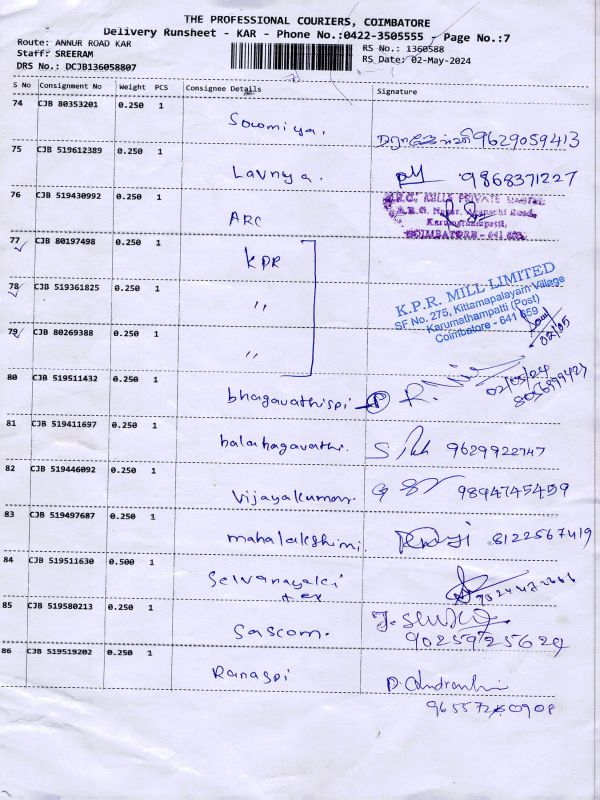 THE PROFESSIONAL COURIERS, COIMBATORE
Delivery Runsheet - KAR - Phone No.:0422-3505555 Page No.:7
Route: ANNUR ROAD KAR
Staff: SREERAM
DRS No.: DCJB136058807
RS No.: 1360588
RS Date: 02-May-2024
S No Consignment No Weight PCS Consignee Details Signature
74 CJB 80353201 0.250 1
Sowmiya. 9629059413
75 CJB 519612389 0.250 1
Lavnya. 9868371227
76 CJB 519430992 0.250 1
ARC
77 CJB 80197498 0.250 1
KPR
78 CJB 519361825 0.250 1
"
K.P.R. MILL LIMITED
SF No. 275, Kittampalayam Village
Karumathampatti (Post)
Coimbatore - 641 659
02/05
79 CJB 80269388 0.250 1
"
80 CJB 519511432 0.250 1
bhagavathispi P R. 02/05/24
81 CJB 519411697 0.250 1
balabagavathi. 9629922747
82 CJB 519446092 0.250 1
Vijayakumar. 9894745459
83 CJB 519497687 0.250 1
mahalakshimi. 8122567419
84 CJB 519511630 0.500 1
Selvanayaki
tex
85 CJB 519580213 0.250 1
Sascom.
86 CJB 519519202 0.250 1
Ranaspi